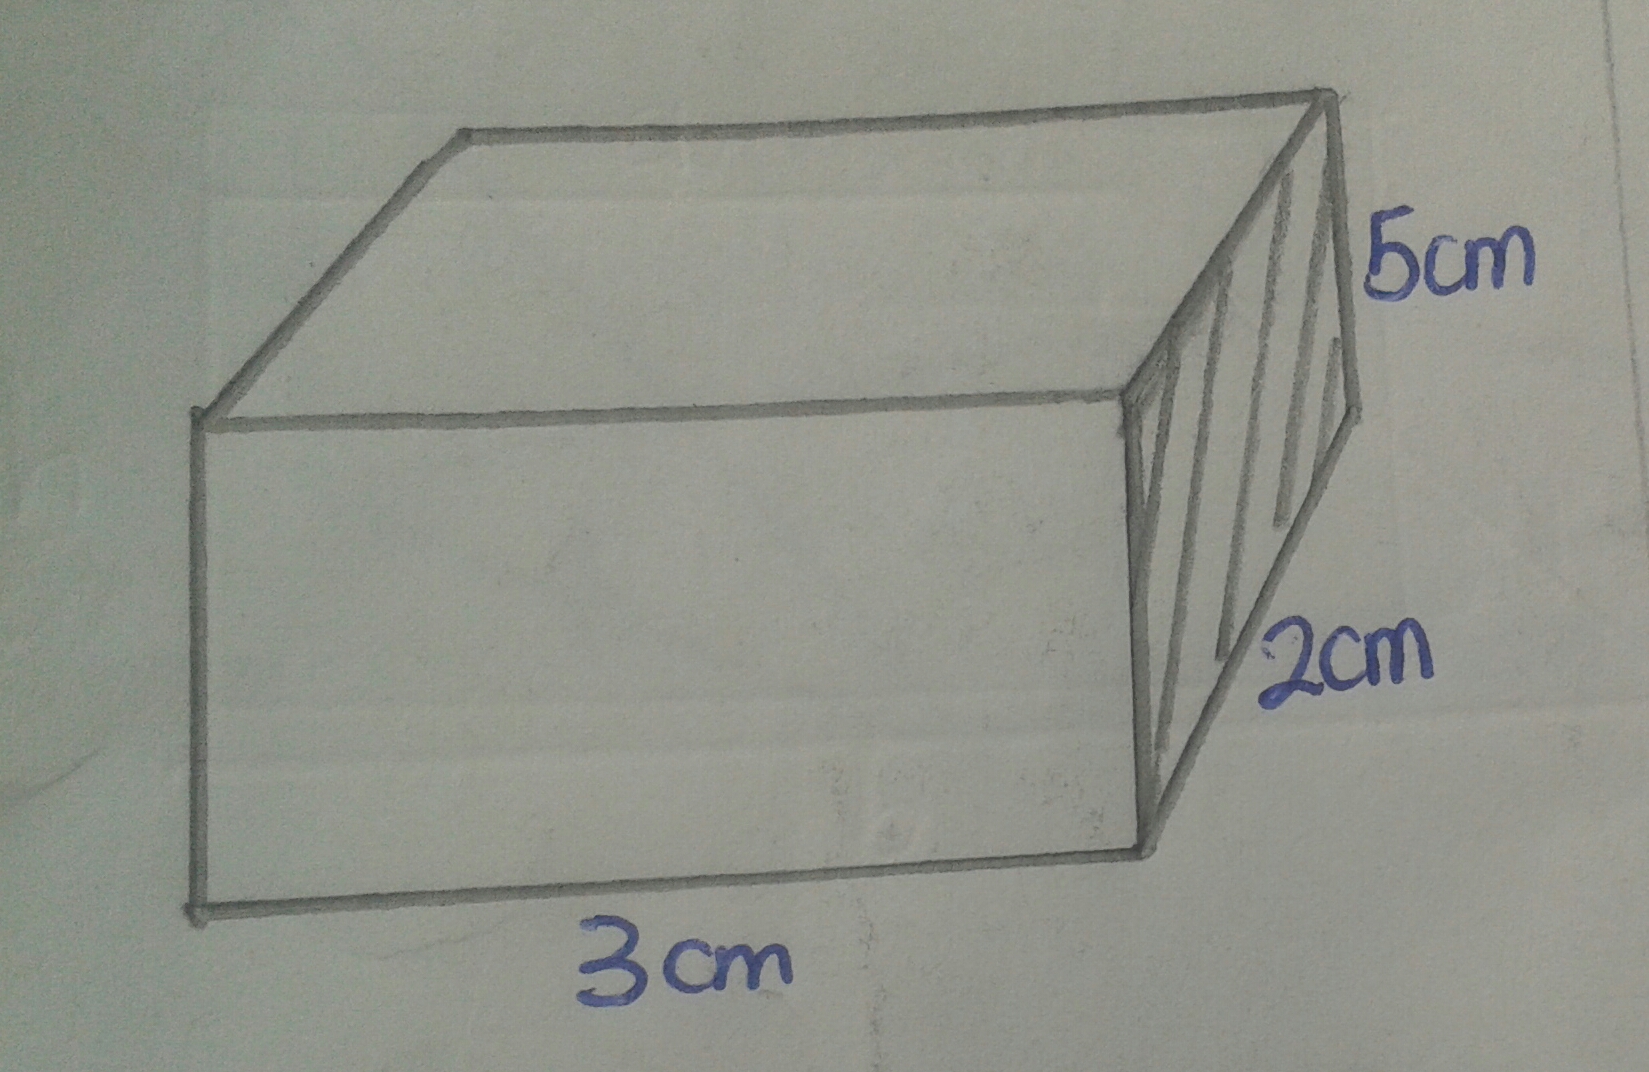 5cm
2cm
3cm